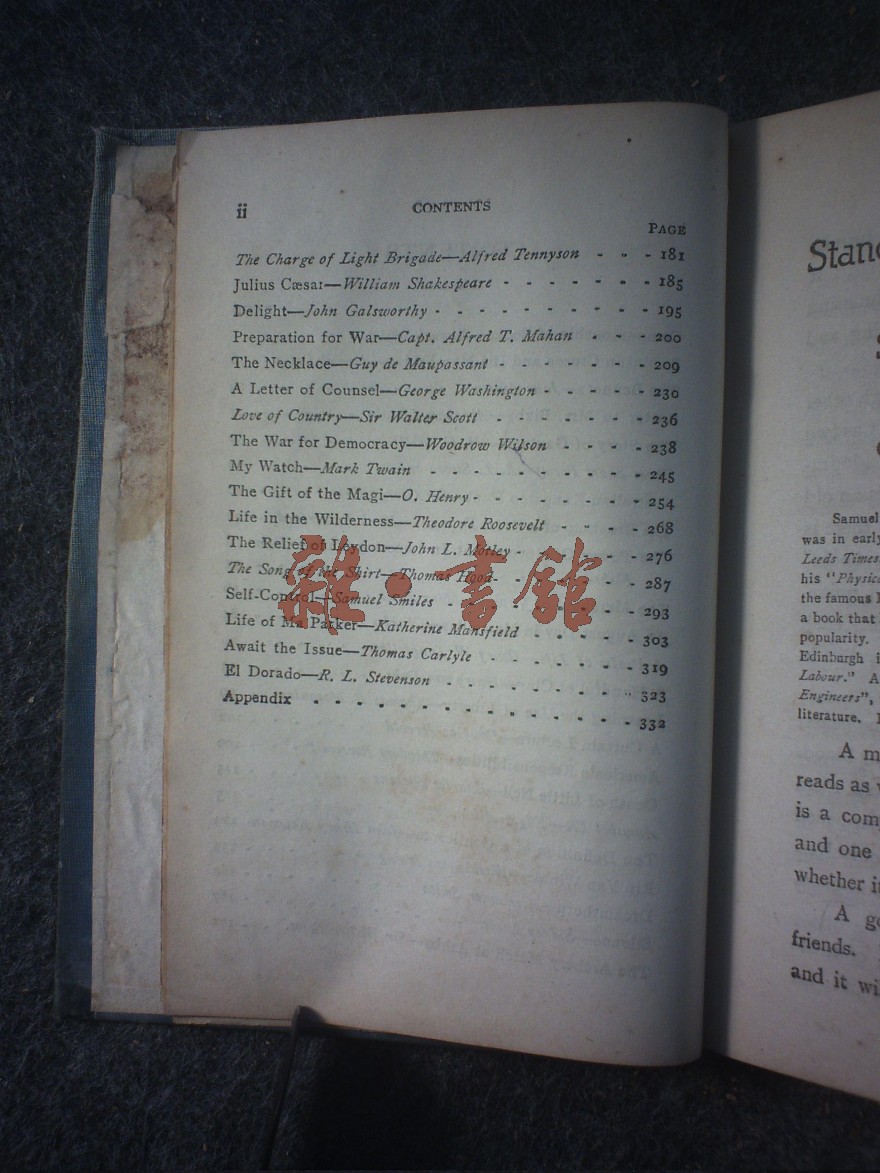 ii
CONTENTS
PAGE
The Charge of Light Brigade—Alfred Tennyson - - - 181
Julius Cæsar—William Shakespeare - - - - - - 185
Delight—John Galsworthy - - - - - - - - - 195
Preparation for War—Capt. Alfred T. Mahan - - - 200
The Necklace—Guy de Maupassant - - - - - - 209
A Letter of Counsel—George Washington - - - - - 230
Love of Country—Sir Walter Scott - - - - - - 236
The War for Democracy—Woodrow Wilson - - - - 238
My Watch—Mark Twain - - - - - - - - 245
The Gift of the Magi—O. Henry - - - - - - - 254
Life in the Wilderness—Theodore Roosevelt - - - - 268
The Relief of Leydon—John L. Motley - - - - - - 276
The Song of the Shirt—Thomas Hood - - - - - - 287
Self-Control—Samuel Smiles - - - - - - - 293
Life of Ma Parker—Katherine Mansfield - - - - - 303
Await the Issue—Thomas Carlyle - - - - - - - 319
El Dorado—R. L. Stevenson - - - - - - - - 323
Appendix - - - - - - - - - - - - 332
雜·書館
Samuel
was in early
Leeds Times
his "Physic
the famous
a book that
popularity.
Edinburgh i
Labour." A
Engineers",
literature.
A m
reads as
is a com
and one
whether i
A go
friends.
and it wi